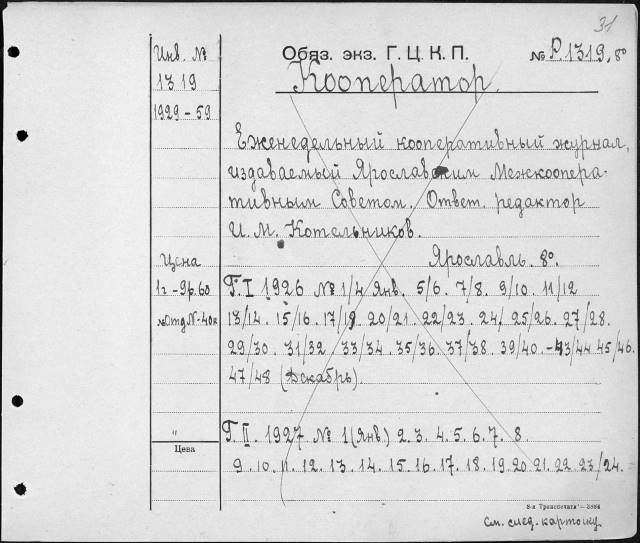 31
Инв. №
1319
1929-59
Обяз. экз. Г. Ц. К. П.
№ Р.1319, 8°
Кооператор.
Еженедельный кооперативный журнал,
издаваемый Ярославским Межкоопера-
тивным Советом. Ответ. редактор
И. М. Котельников.
Ярославль. 8°.
Цена
1г - 9р. 60
№ Отд. N - 40к
Г. I 1926 № 1/4 Янв. 5/6. 7/8. 9/10. 11/12
13/14. 15/16. 17/19 20/21. 22/23. 24/ 25/26. 27/28.
29/30. 31/32 33/34. 35/36. 37/38. 39/40. - 43/44 45/46.
47/48 (Декабрь).
"
Цена
Г. II. 1927 № 1 (Янв.) 2. 3. 4. 5. 6. 7. 8.
9. 10. 11. 12. 13. 14. 15. 16. 17. 18. 19. 20. 21. 22. 23/24.
8-я Транспечати — 3884
См. след. карточку